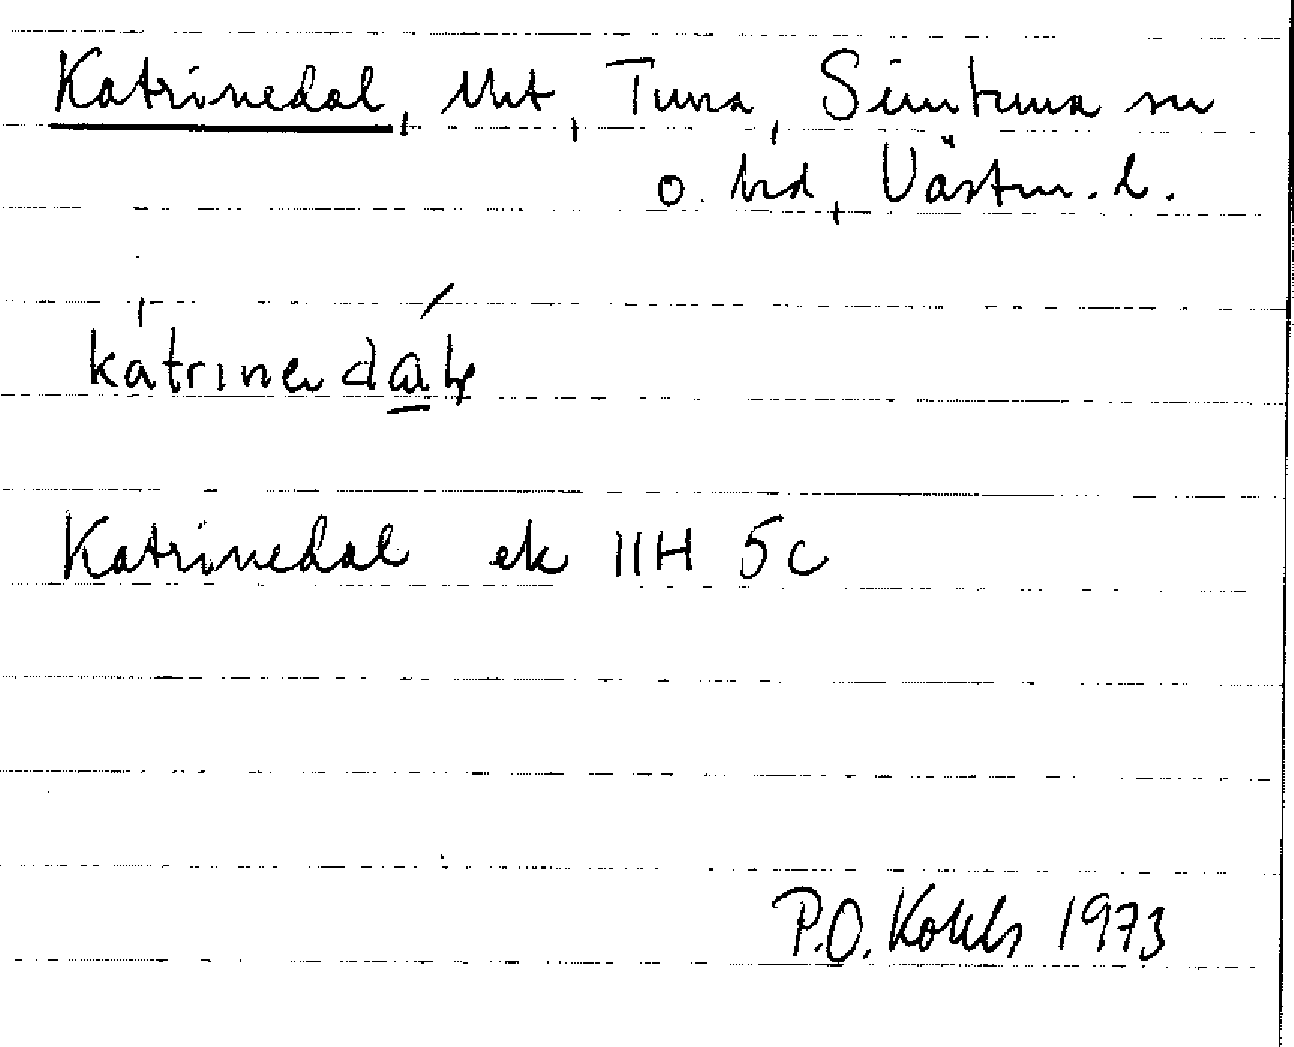 Katrinedal, Uht, Tuna, Simtuna sn
o. hd, Västm. l.
katrinendal
Katrinedal ek 11H 5c
P.O. Kohls 1973